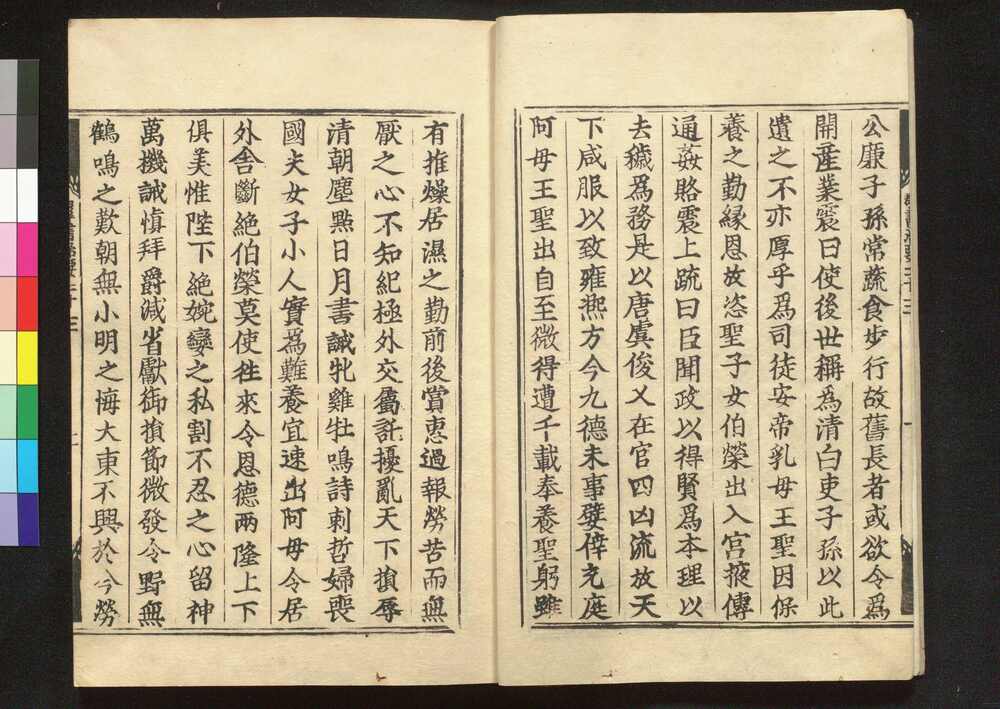 公廉子孫常蔬食步行故舊長者或欲令爲
開產業震曰使後世稱爲清白吏子孫以此
遺之不亦厚乎爲司徒安帝乳母王聖因保
養之勤縁恩放恣聖子女伯榮出入宮掖傳
通姦賂震上疏曰臣聞政以得賢爲本理以
去穢爲務是以唐虞俊乂在官四凶流放天
下咸服以致雍熙方今九德未事嬖倖充庭
阿母王聖出自至微得遭千載奉養聖躬雖
有推燥居濕之勤前後賞惠過報勞苦而無
厭之心不知紀極外交屬託擾亂天下損辱
清朝塵點日月書誡牝雞牡鳴詩刺哲婦喪
國夫女子小人實爲難養宜速出阿母令居
外舍斷絶伯榮莫使往來令恩德兩隆上下
俱美惟陛下絶婉孌之私割不忍之心留神
萬機誡慎拜爵減省獻御損節微發令野無
鶴鳴之歎朝無小明之悔大東不興於今勞